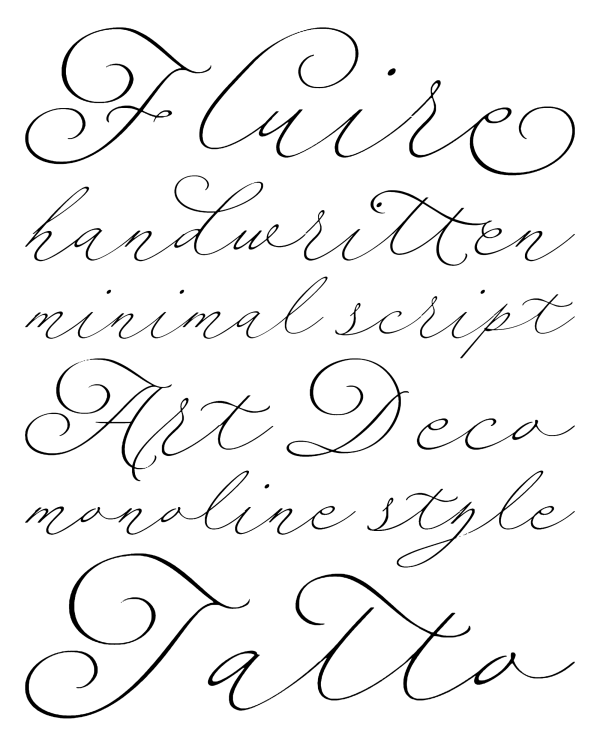 Fluire
handwritten
minimal script
Art Deco
monoline style
Tatto